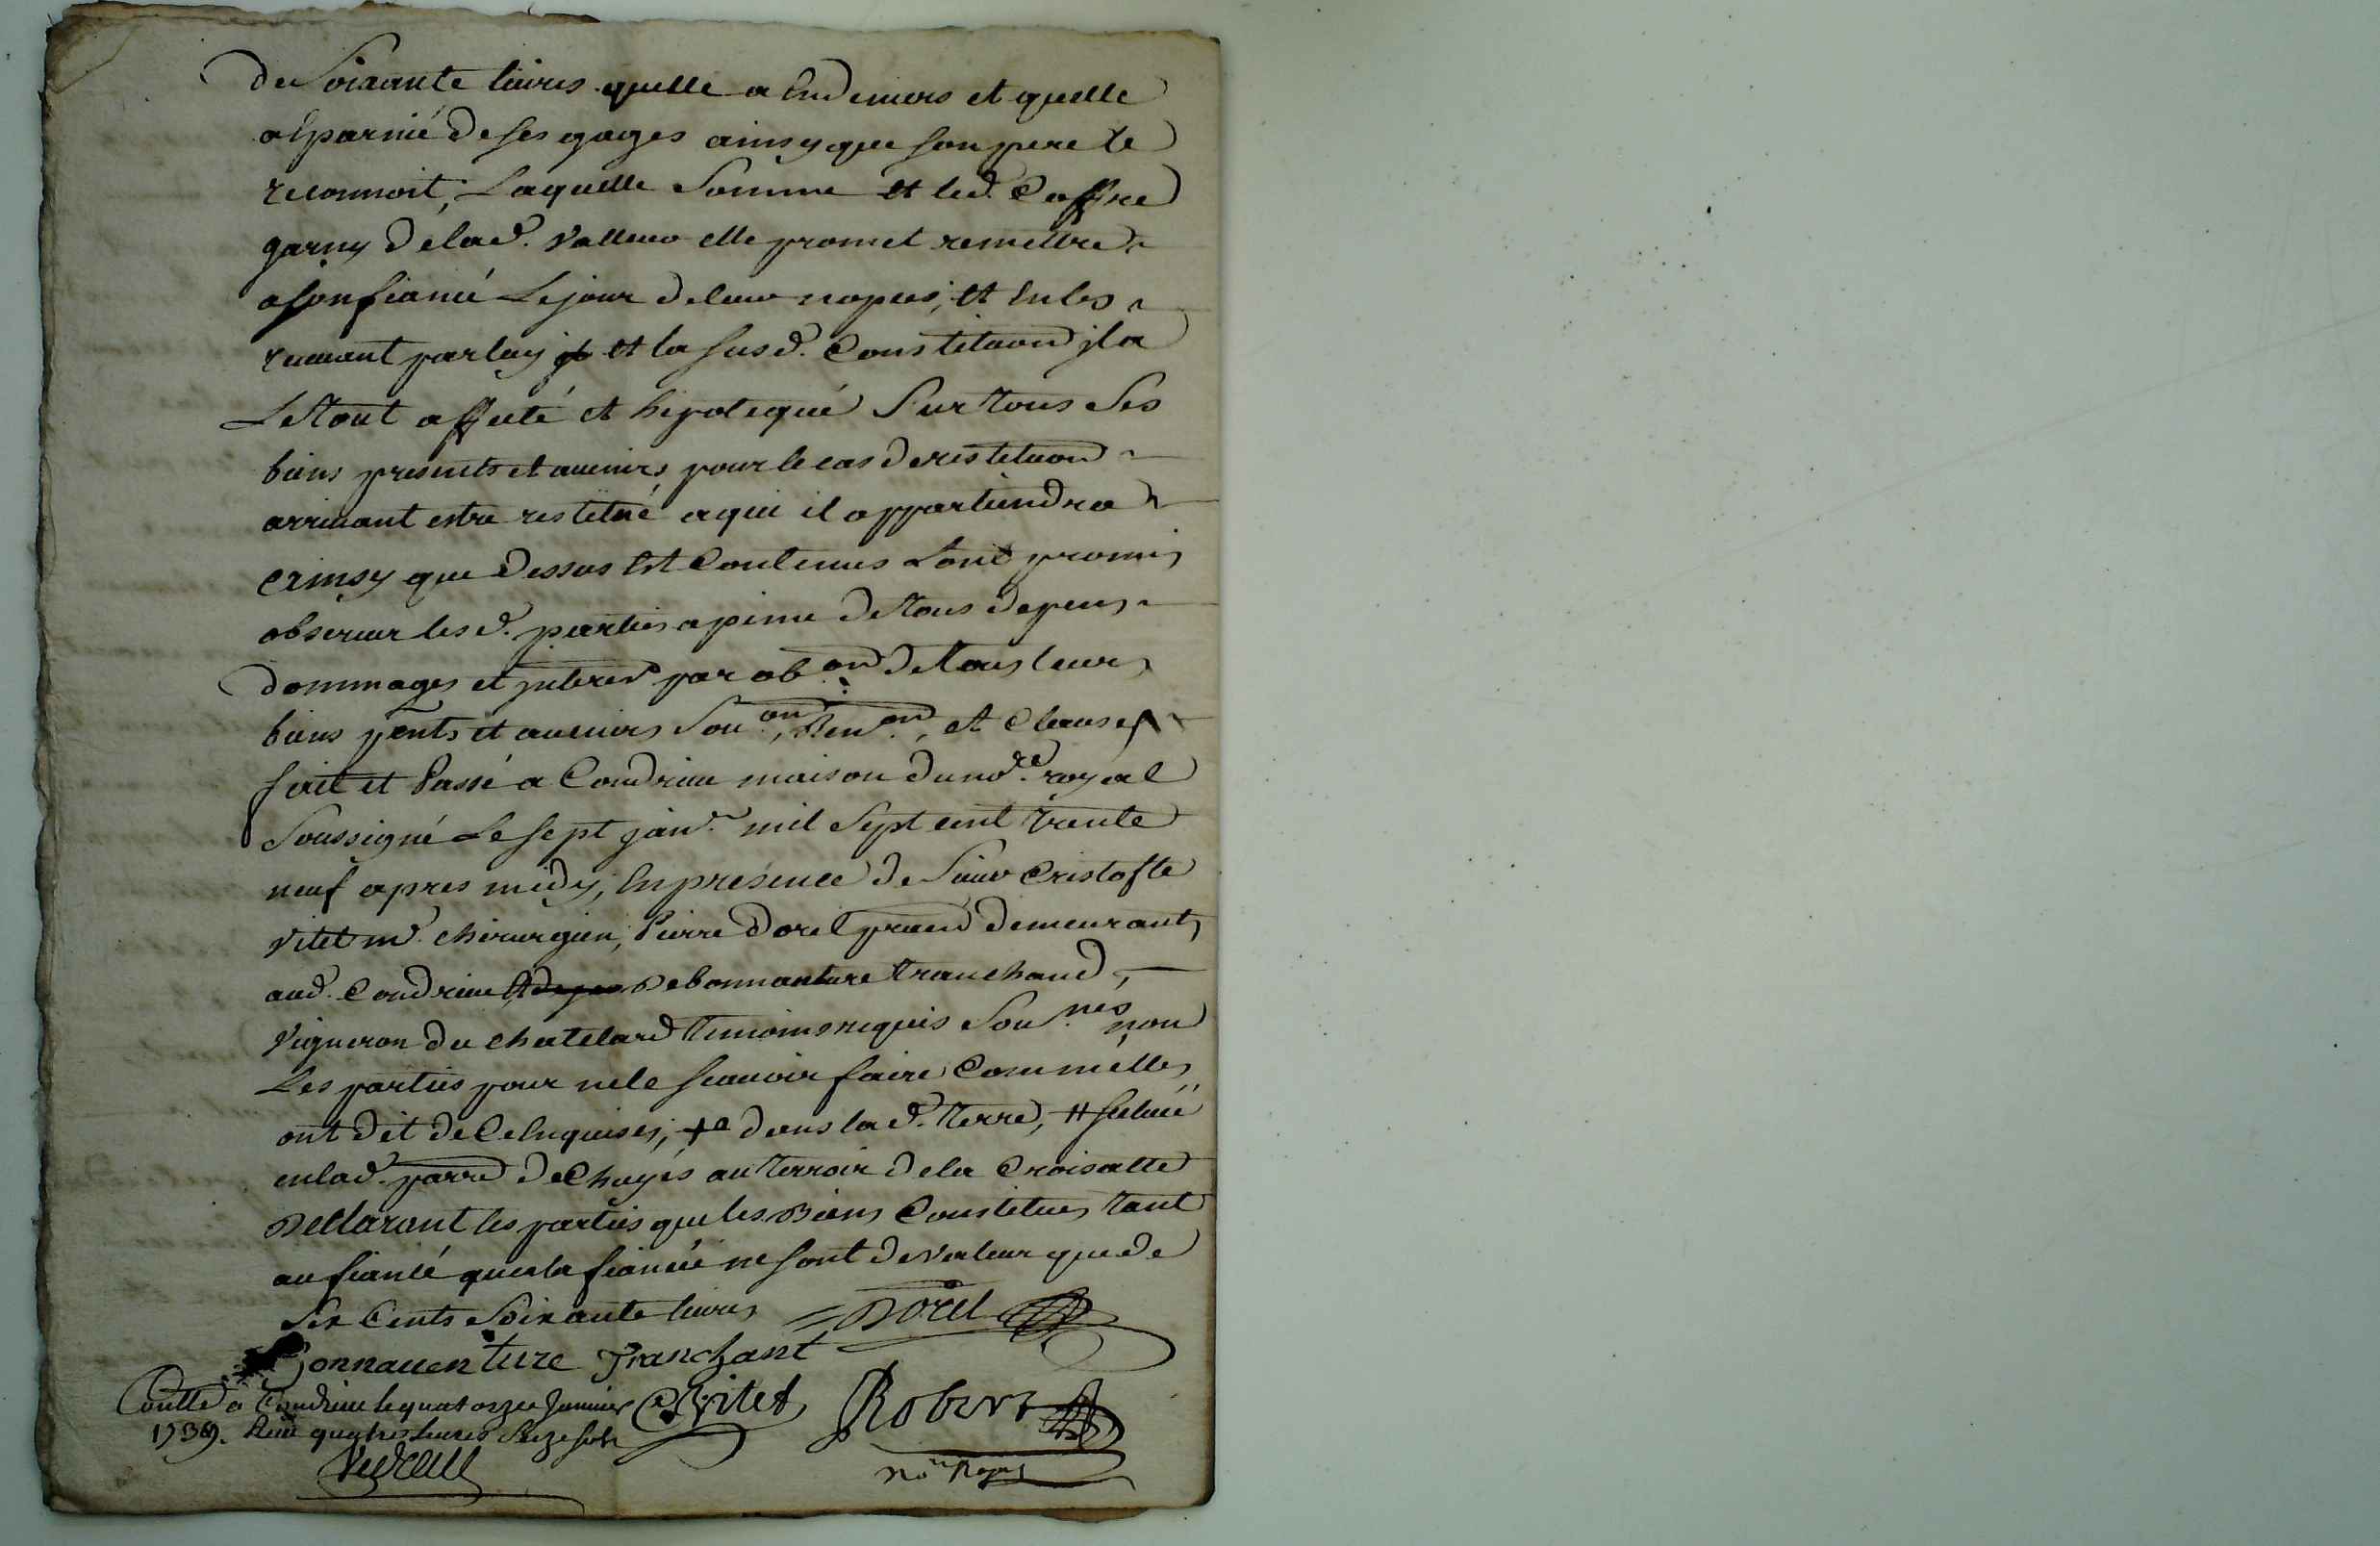 de Soixante livres quelle a En deniers et quelle
a Eparnié de ses gages ainsy que son pere le
reconnoit, Laquelle Somme et led. Coffre
garny de lad. valleur elle promet remettre
a son fiancé Le jour de leur nopces, et En les
recevant par luy et la susd. Constituon il a
Le tout affecté et hipotequé Sur tous Ses
biens presents et avenirs, pour le cas de restituon
arrivant estre restitué a qui il appartiendra
Ainsy que dessus Est Contenus L'ont promis
observer lesd. parties a peine de tous depens
dommages et interest par ob.on de tous leurs
biens pnts et avenirs Sou.on, Ren.on, et Clauses
fait et Passé a Condrieu maison du no.re royal
Soussigné Le sept janv. mil Sept cent trente
neuf apres midy, En présence de Sieur Cristofle
vitet m.e chirurgien, Pierre dorel praen demeurants
aud. Condrieu Et de Bonnanture tranchand,
Vigneron du chatelard temoins requis Sou.nés non
Les parties pour ne le scauoir faire Comm'elles
ont dit de Ce Enquises, + dans lad. terre, # scituée
en lad. parre de Chuyés au terroir de la Croisatte
Declarant les parties que les Biens Constitues tant
au fiancé que a la fiancée ne sont de valeur que de
Six Cents Soixante livres Dorel
Bonnauenture Tranchant
Conllé a Condrieu le quatorze Janvier C Vitet Robert
1739. Receu quatres livres Seize sols
no.re Royal